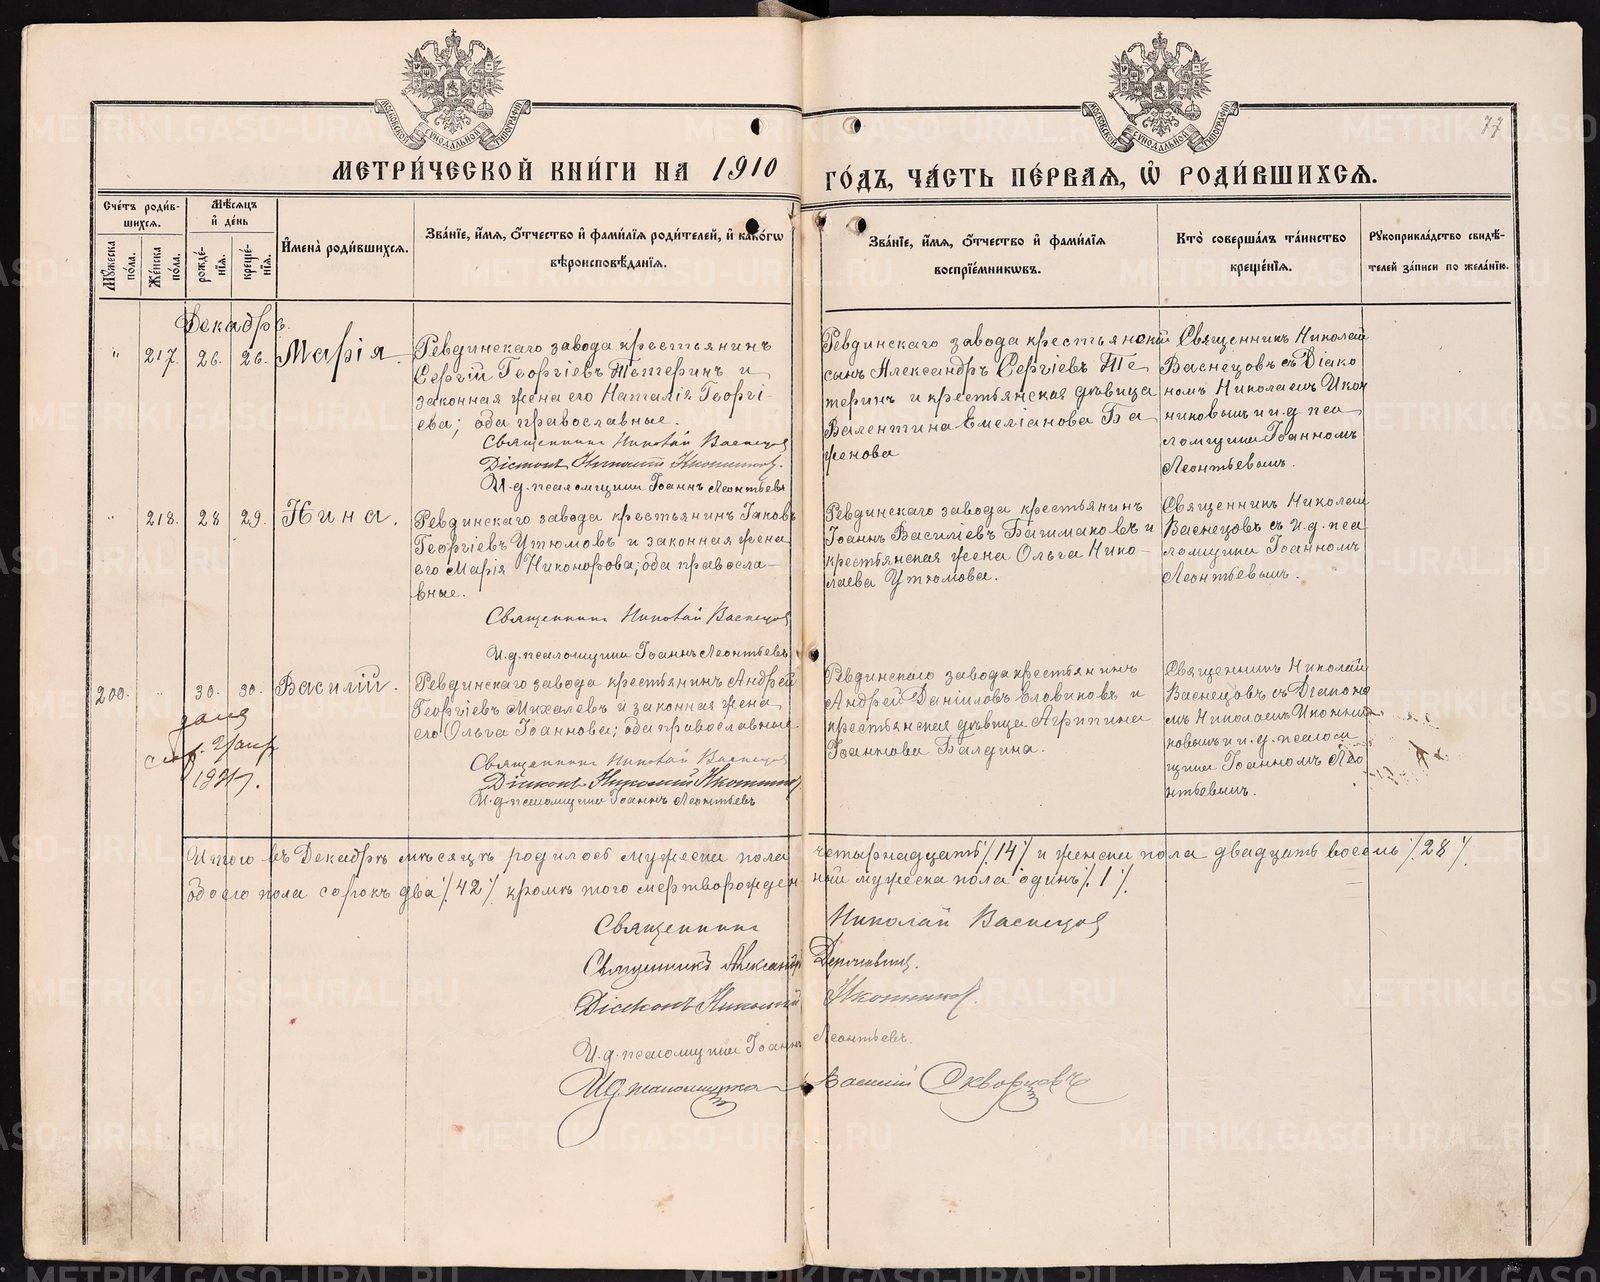 МОСКОВСКОЙ СѴНОДАЛЬНОЙ ТИПОГРАФІИ
МОСКОВСКОЙ СѴНОДАЛЬНОЙ ТИПОГРАФІИ
77
МЕТРИ́ЧЕСКОЙ КНИ́ГИ НА 1910
ГО́ДЪ, ЧА́СТЬ ПЕ́РВАЯ, Ѡ РОДИ́ВШИХСЯ.
Сче́тъ роди́в-
шихся.
Мѣсяцъ
и де́нь
Му́жеска
по́ла.
Же́нска
по́ла.
рожде́-
нія.
креще́-
нія.
Имена̀ роди́вшихся.
Зва́ніе, и́мя, ѻ́тчество и фами́лія роди́телей, и како́гѡ
вѣроисповѣ́данія.
Зва́ніе, и́мя, ѻ́тчество и фами́лія
воспріе́мниковъ.
Кто̀ соверша́лъ та́инство
креще́нія.
Рукоприкла́дство свидѣ́-
телей за́писи по жела́нію.
Декабрь.
" 217. 26. 26. Марія
Ревдинскаго завода крестьянинъ
Сергій Георгіевъ Тетеринъ и
законная жена его Наталія Георгі-
ева; оба православные.
Священникъ Николай Васнецовъ
Діаконъ Николай Иконниковъ.
И.д. псаломщика Іоаннъ Леонтьевъ
Ревдинскаго завода крестьянскій
сынъ Александръ Сергіевъ Те
теринъ и крестьянская дѣвица
Валентина Емеліанова Ба
женова
Священникъ Николай
Васнецовъ съ Діако
номъ Николаемъ Икон
никовымъ и и.д. пса
ломщика Іоанномъ
Леонтьевымъ.
" 218. 28 29. Нина.
Ревдинскаго завода крестьянинъ Іаковъ
Георгіевъ Утюмовъ и законная жена
его Марія Никонорова; оба правосла-
вные.
Священникъ Николай Васнецовъ
И.д. псаломщика Іоаннъ Леонтьевъ
Ревдинскаго завода крестьянинъ
Іоаннъ Василіевъ Башмаковъ и
крестьянская жена Ольга Нико-
лаева Утюмова.
Священникъ Николай
Васнецовъ съ и.д. пса
ломщика Іоанномъ
Леонтьевымъ.
200. " 30. 30. Василій.
дана
1927.
Ревдинскаго завода крестьянинъ Андрей
Георгіевъ Михалевъ и законная жена
его Ольга Іоаннова; оба православные.
Священникъ Николай Васнецовъ
Діаконъ Николай Иконниковъ
И.д. псаломщика Іоаннъ Леонтьевъ
Ревдинскаго завода крестьянинъ
Андрей Даніиловъ Еловиковъ и
крестьянская дѣвица Агрипина
Іоаннова Балдина.
Священникъ Николай
Васнецовъ съ Діакона
мъ Николаемъ Иконни
ковымъ и и.д. псалом
щика Іоанномъ Лео
нтьевымъ.
Итого въ Декабрѣ мѣсяцѣ родилось мужеска пола четырнадцать /14/ и женска пола двадцать восемь /28/,
обоего пола сорокъ два /42/ кромѣ того мертворожден ный мужеска пола одинъ /1/.
Священникъ Николай Васнецовъ
Священникъ Александръ
Діаконъ Николай Иконниковъ.
И.д. псаломщика Іоаннъ Леонтьевъ.
И.д. псаломщика Василій Скворцовъ
METRIKI.GASO-URAL.RU